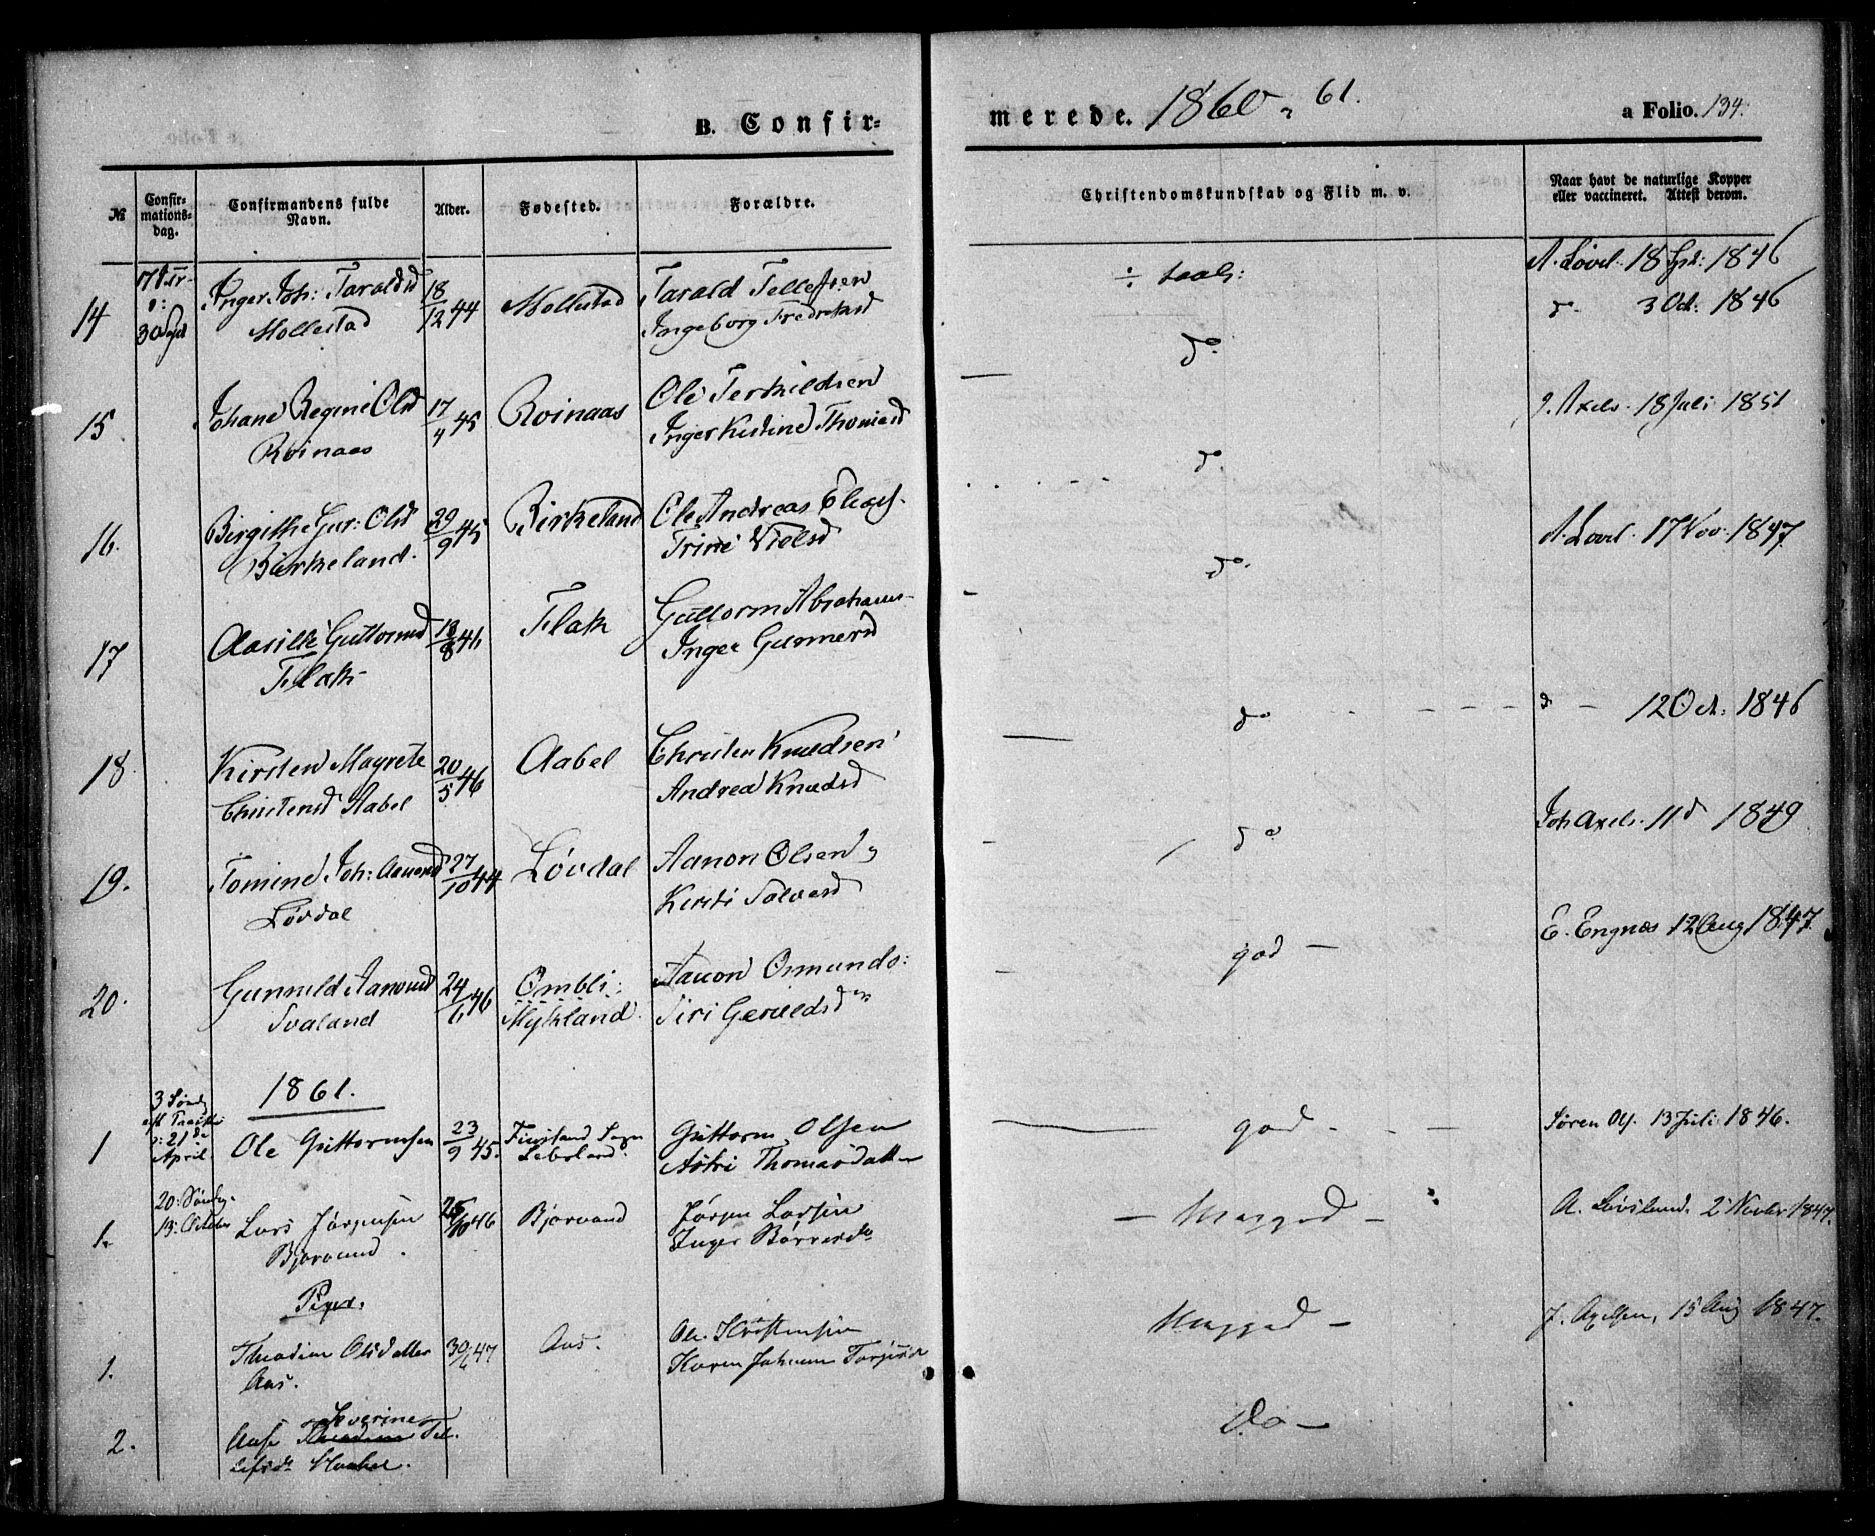 B. Confir-
merede. 1860 - 61.
a Folio. 134.
№
Confir-
mations-
dag.
Confirmandens fulde
Navn.
Alder.
Fødested.
Forældre.
Christendomskundskab og Flid m. v.
Naar havt de naturlige Kopper
eller vaccineret. Attest derom.
14
17
30
Inger Joh: Taraldsd
Mollestad
18/12 44
Mollestad
Tarald Tellefsen
Ingeborg Fredriksd
÷ taals:
A. Lovel. 18 Spt: 1846
d. 3 Oct: 1846
15
Johane Regine Olsd
Roinaas
17/4 45
Roinaas
Ole Terkildsen
Inger Kistine Thomasd
do
J. Axels. 18 Juli 1851
16.
Birgithe Gur: Olsd
Birkeland.
29/9 45
Birkeland
Ole Andreas Eliass.
Trine Nielsd
do
A. Lovel. 17 Nov: 1847.
17
Aasille Guttormsd
Flak
13/8 46
Flak
Guttorm Abrahams-
Inger Gunnersd
do
d - 12 Oct: 1846
18
Kirsten Magrete
Christensd Aabel
20/5 46
Aabel
Christen Knudsen
Andrea Knudsd
do
Joh Axels. 11 d 1849
19.
Tomine Joh: Aanonsd
Løvdal
27/10 44
Løvdal
Aanon Olsen
Kirsti Salvesd
do
E. Engnæs 12 Aug 1847.
20.
Gunnild Aanonsd
Svaland
24/6 46
Ombli:
Mykland.
Aanon Osmunds:
Siri Geruldsd
god -
1861.
1
3 Sønd
21de
April.
Ole Guttormsen
23/9 45.
Finsland Sogn
Lebesland.
Guttorm Olsen
Astri Thomasdatt
god - - -
Søren Ols. 13 Juli 1846.
1.
20. Søndag
13. October
Lars Jørgensen
Bjorvand.
26/10 46
Bjorvand
Jørgen Larsen
Inger Børresd
- Megget god -
A. Løvsland. 2 Novbr 1847.
Piger.
1.
Theodine Olsdatter
Aas.
30/6 47
Aas.
Ole Kristensen
Karen Johanne Torjusd
Megget god -
J. Axelsen, 15 Aug 1847.
2.
Severine
Aase Theodine Tel-
lefsd
Do -